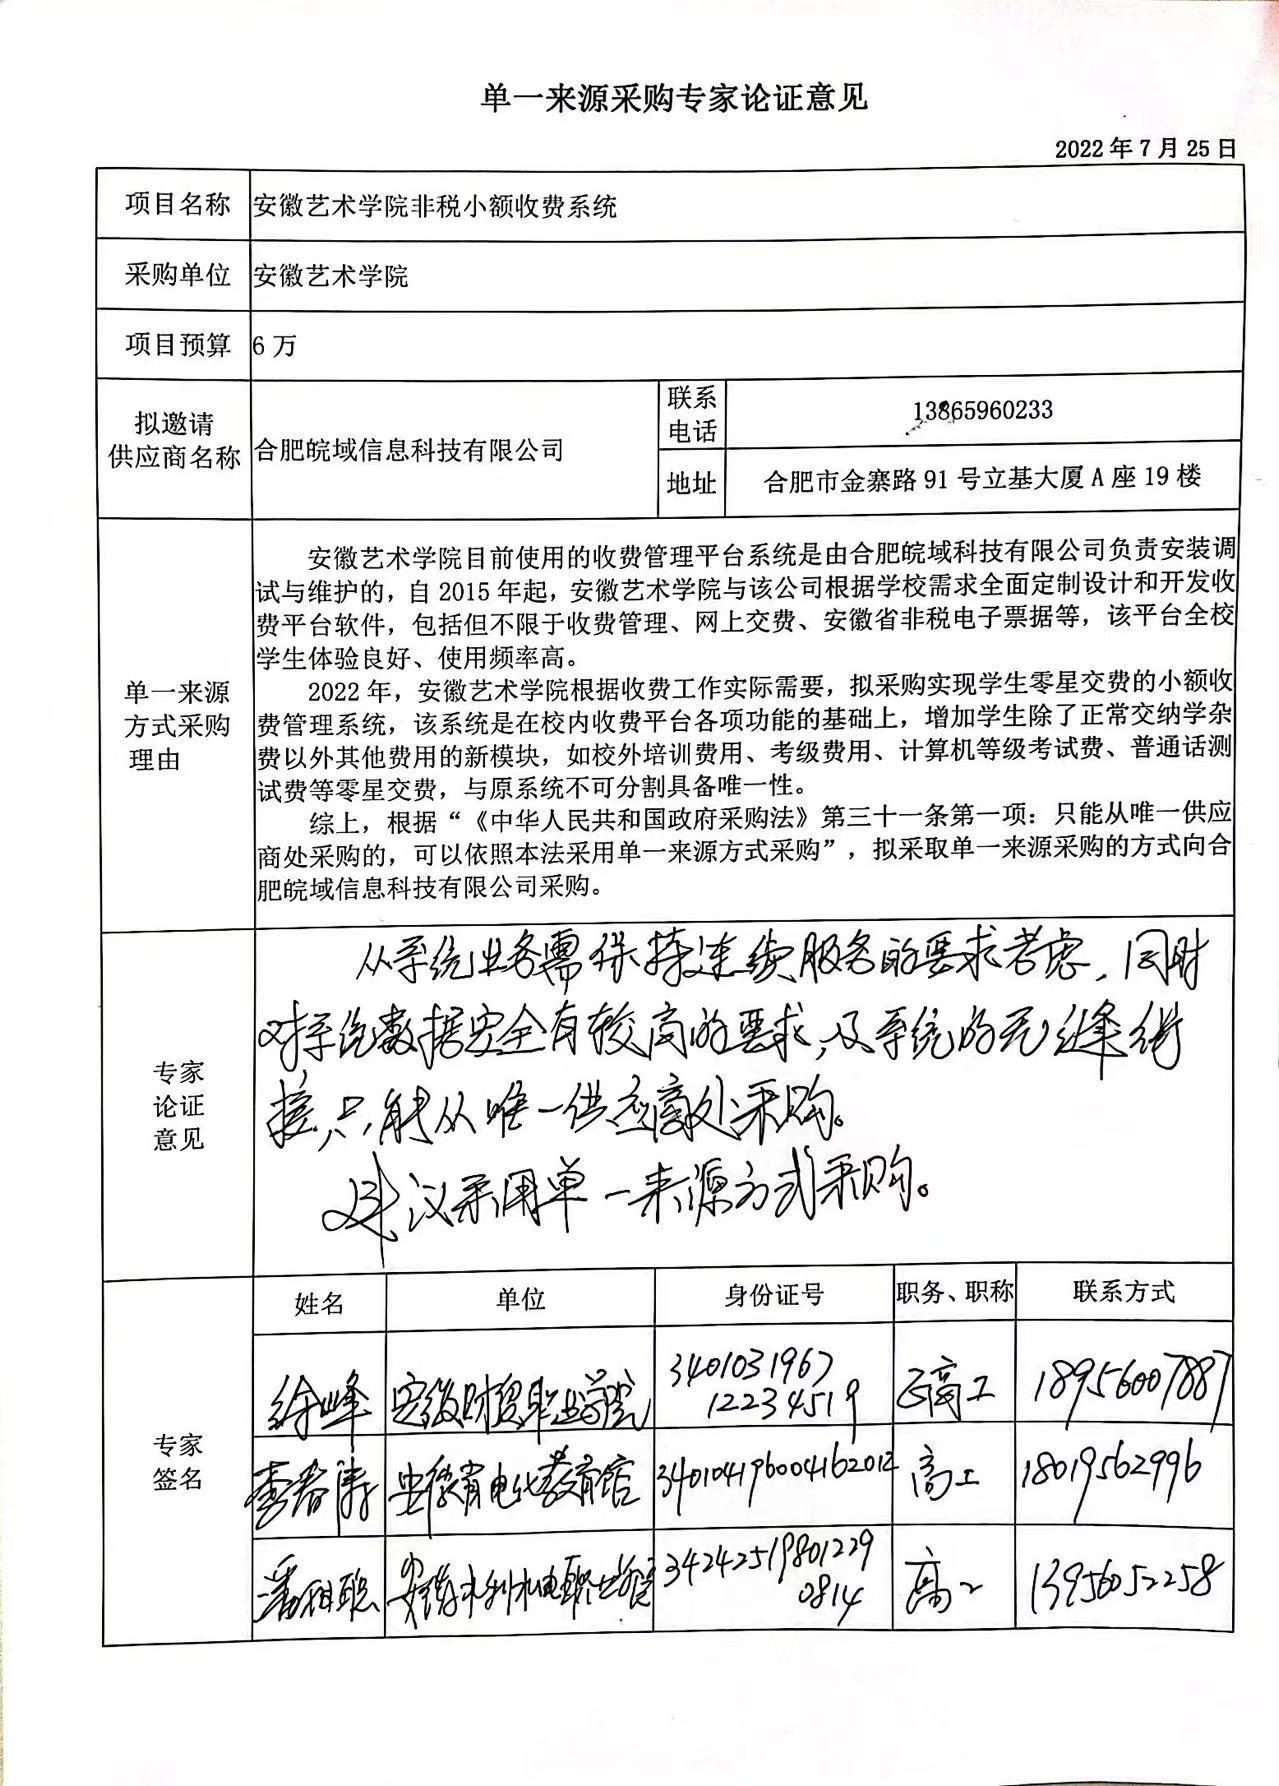 单一来源采购专家论证意见
2022年7月25日
项目名称 安徽艺术学院非税小额收费系统
采购单位 安徽艺术学院
项目预算 6万
拟邀请
供应商名称
合肥皖域信息科技有限公司
联系
电话
13865960233
地址 合肥市金寨路91号立基大厦A座19楼
单一来源
方式采购
理由
安徽艺术学院目前使用的收费管理平台系统是由合肥皖域科技有限公司负责安装调
试与维护的，自2015年起，安徽艺术学院与该公司根据学校需求全面定制设计和开发收
费平台软件，包括但不限于收费管理、网上交费、安徽省非税电子票据等，该平台全校
学生体验良好、使用频率高。
2022年，安徽艺术学院根据收费工作实际需要，拟采购实现学生零星交费的小额收
费管理系统，该系统是在校内收费平台各项功能的基础上，增加学生除了正常交纳学杂
费以外其他费用的新模块，如校外培训费用、考级费用、计算机等级考试费、普通话测
试费等零星交费，与原系统不可分割具备唯一性。
综上，根据“《中华人民共和国政府采购法》第三十一条第一项：只能从唯一供应
商处采购的，可以依照本法采用单一来源方式采购”，拟采取单一来源采购的方式向合
肥皖域信息科技有限公司采购。
专家
论证
意见
从系统业务需保持连续服务的要求考虑，同时
对系统数据安全有较高的要求，及系统的无缝衔
接，只能从唯一供应商处采购。
建议采用单一来源方式采购。
专家
签名
姓名 单位 身份证号 职务、职称 联系方式
徐峰 安徽财贸职业学院 340103196712234519 正高工 18956007887
李春涛 安徽省电化教育馆 340104196004162012 高工 18019562996
潘祖聪 安徽水利水电职业学院 342425198012290814 高工 13956052258